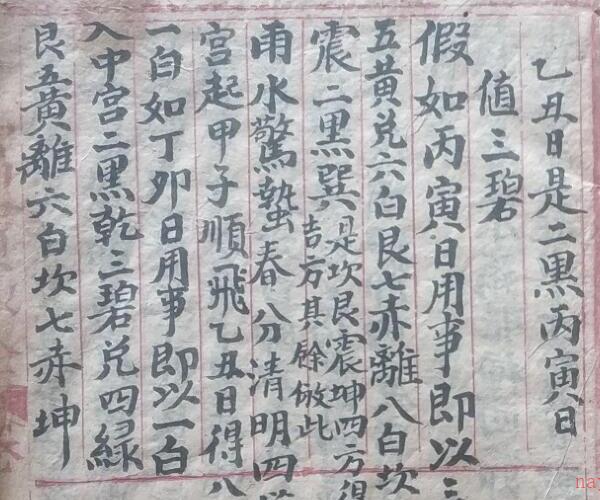 乙丑日是二黑丙寅日
值三碧
假如丙寅日用事即以三
五黄兑六白艮七赤離八白坎
震二黒巽
是坎艮震坤四方得
吉方其餘倣此
雨水驚蟄春分清明四
宮起甲子順飛乙丑日得八
一白如丁夘日用事即以一白
入中宮二黒乾三碧兑四緑
艮五黄離六白坎七赤坤
na